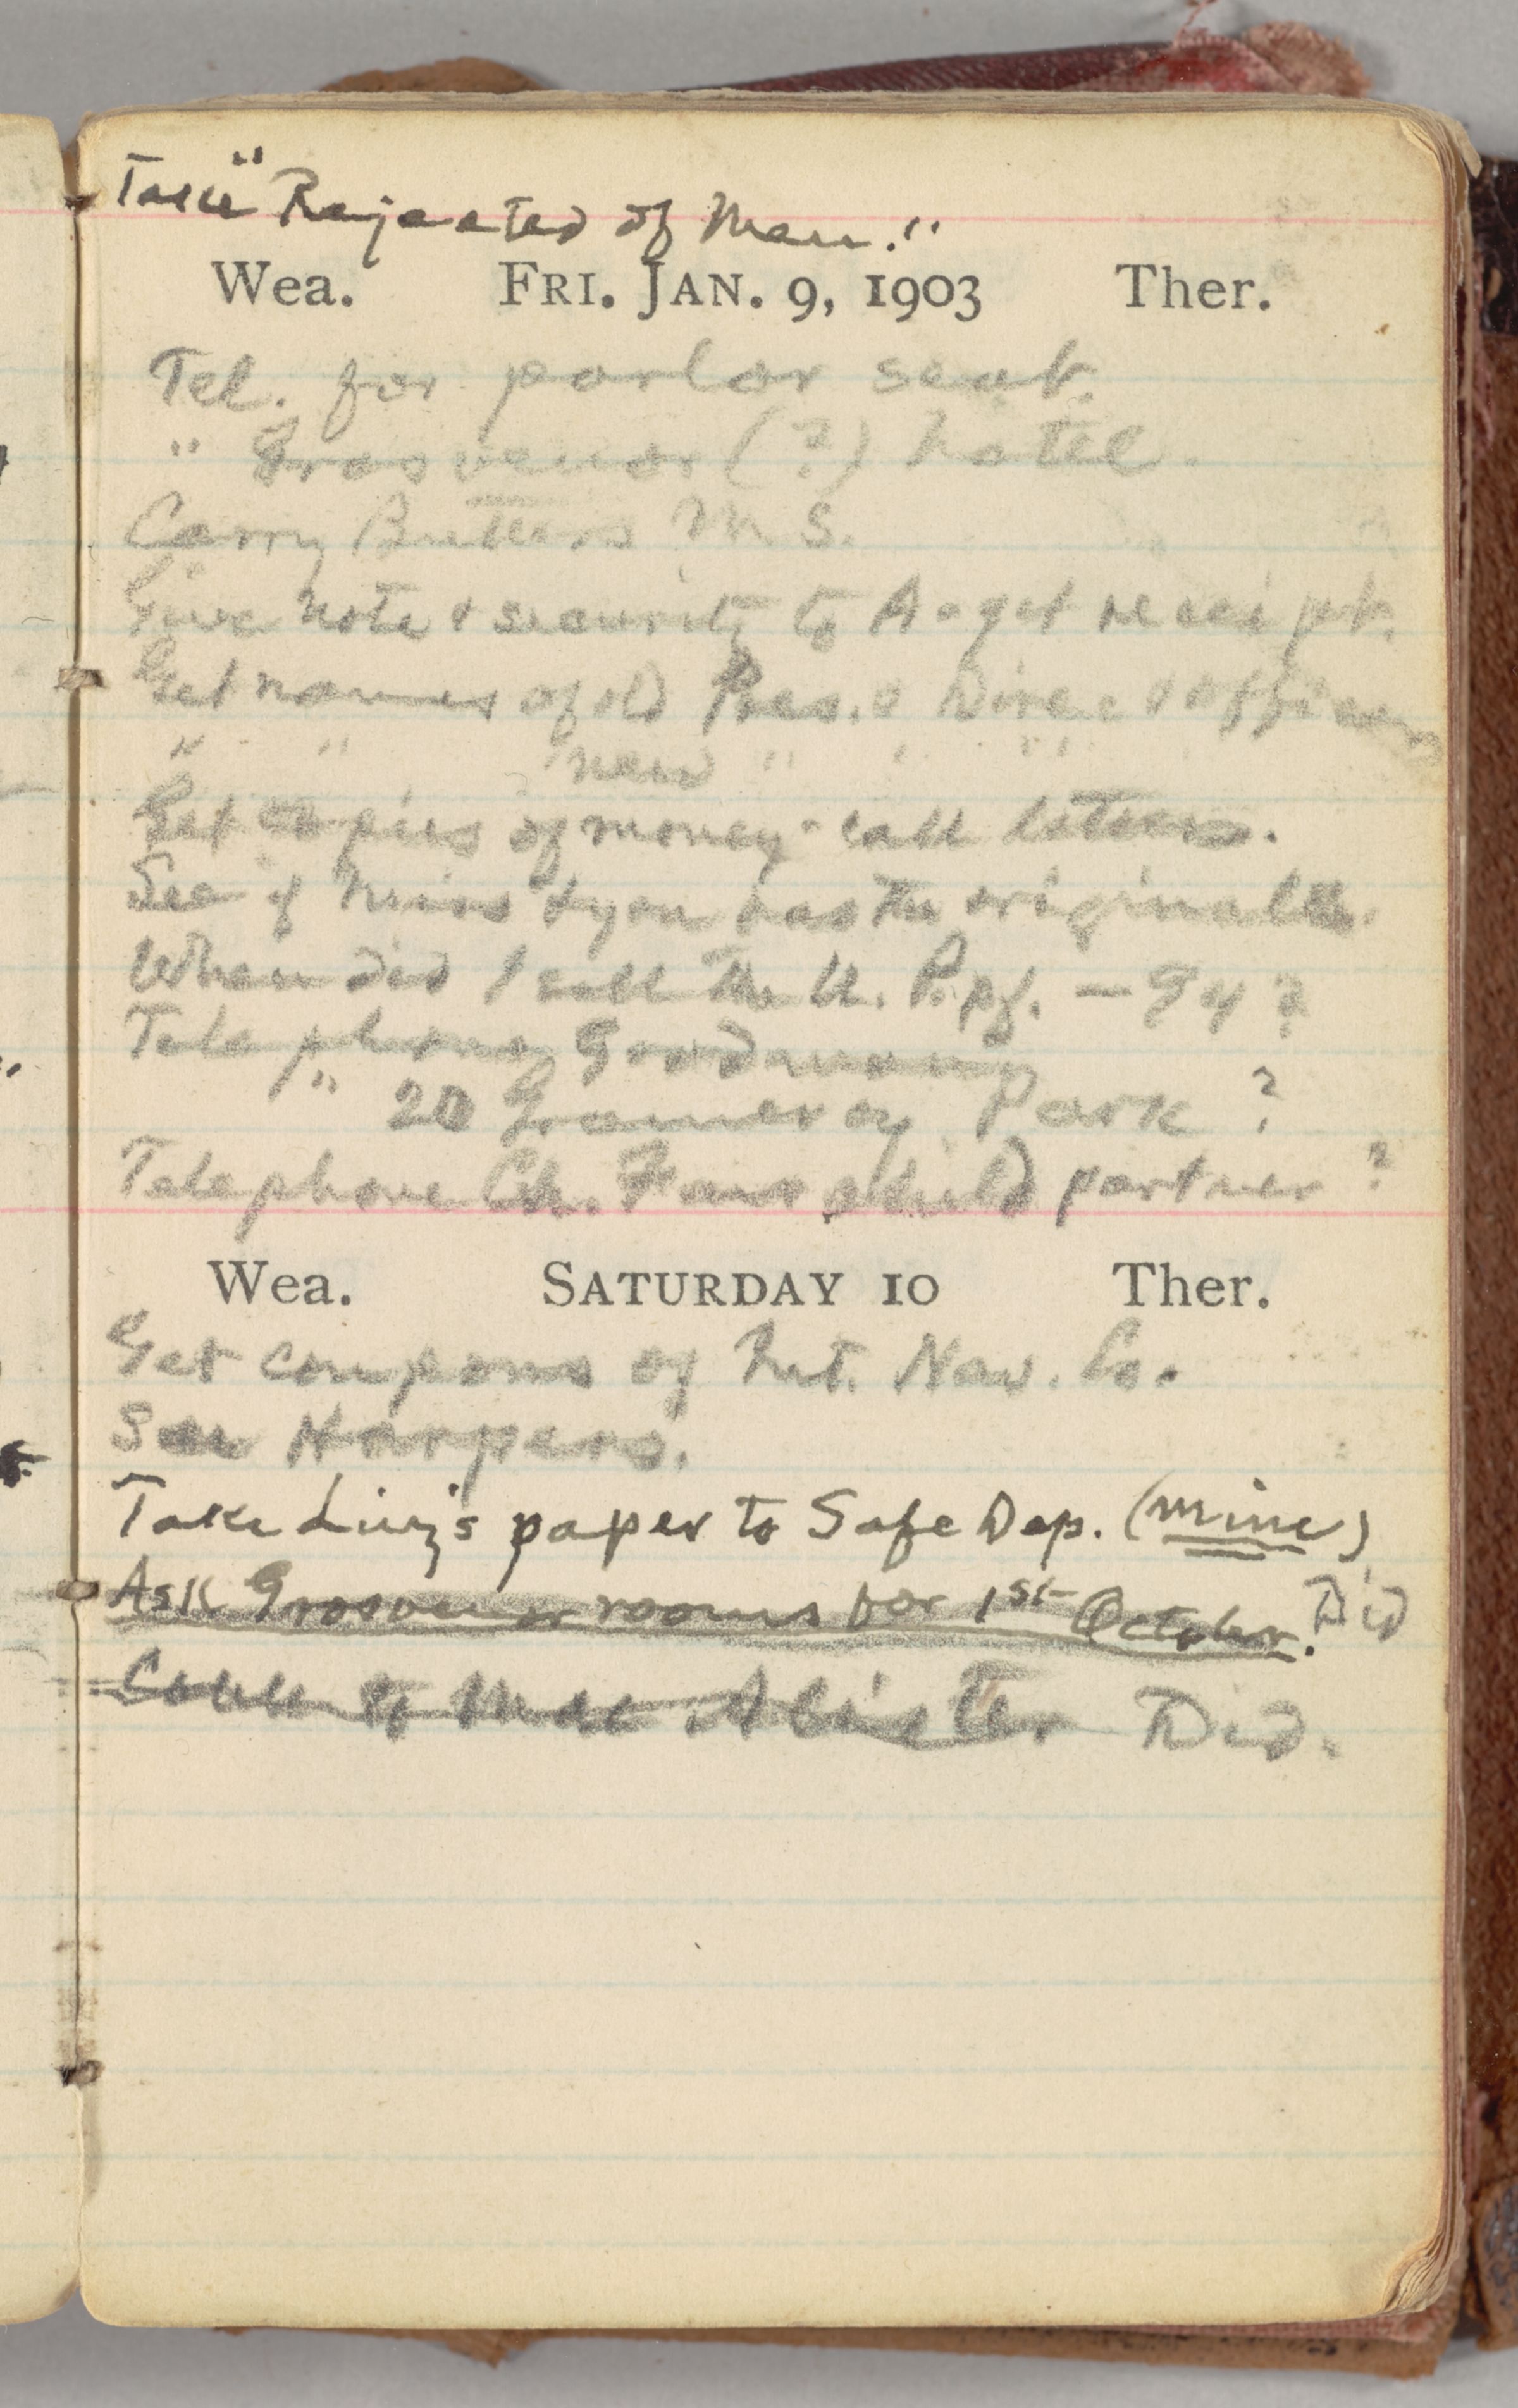 Take "Rejected of Men."
Wea. FRI. JAN. 9, 1903 Ther.
Tel. for parlor seat.
" Grosvenor (?) hotel.
Carry Butters M S.
Give note & security to A - get receipt.
Get names of old Pres. & Direc & officers
" " new " " "
Get copies of money-call letters.
See if Miss Lyon has the originals.
When did I sell the U. P. pf. — 94?
Telephone Goodman
" 20 Gramercy Park ?
Telephone Ch. Fairchild partner ?
Wea. SATURDAY 10 Ther.
Get coupons of Int. Nav. Co.
See Harpers.
Take Livy's paper to Safe Dep. (mine)
Ask Grosvenor rooms for 1st October. Did
Cable to MacAlister Did.